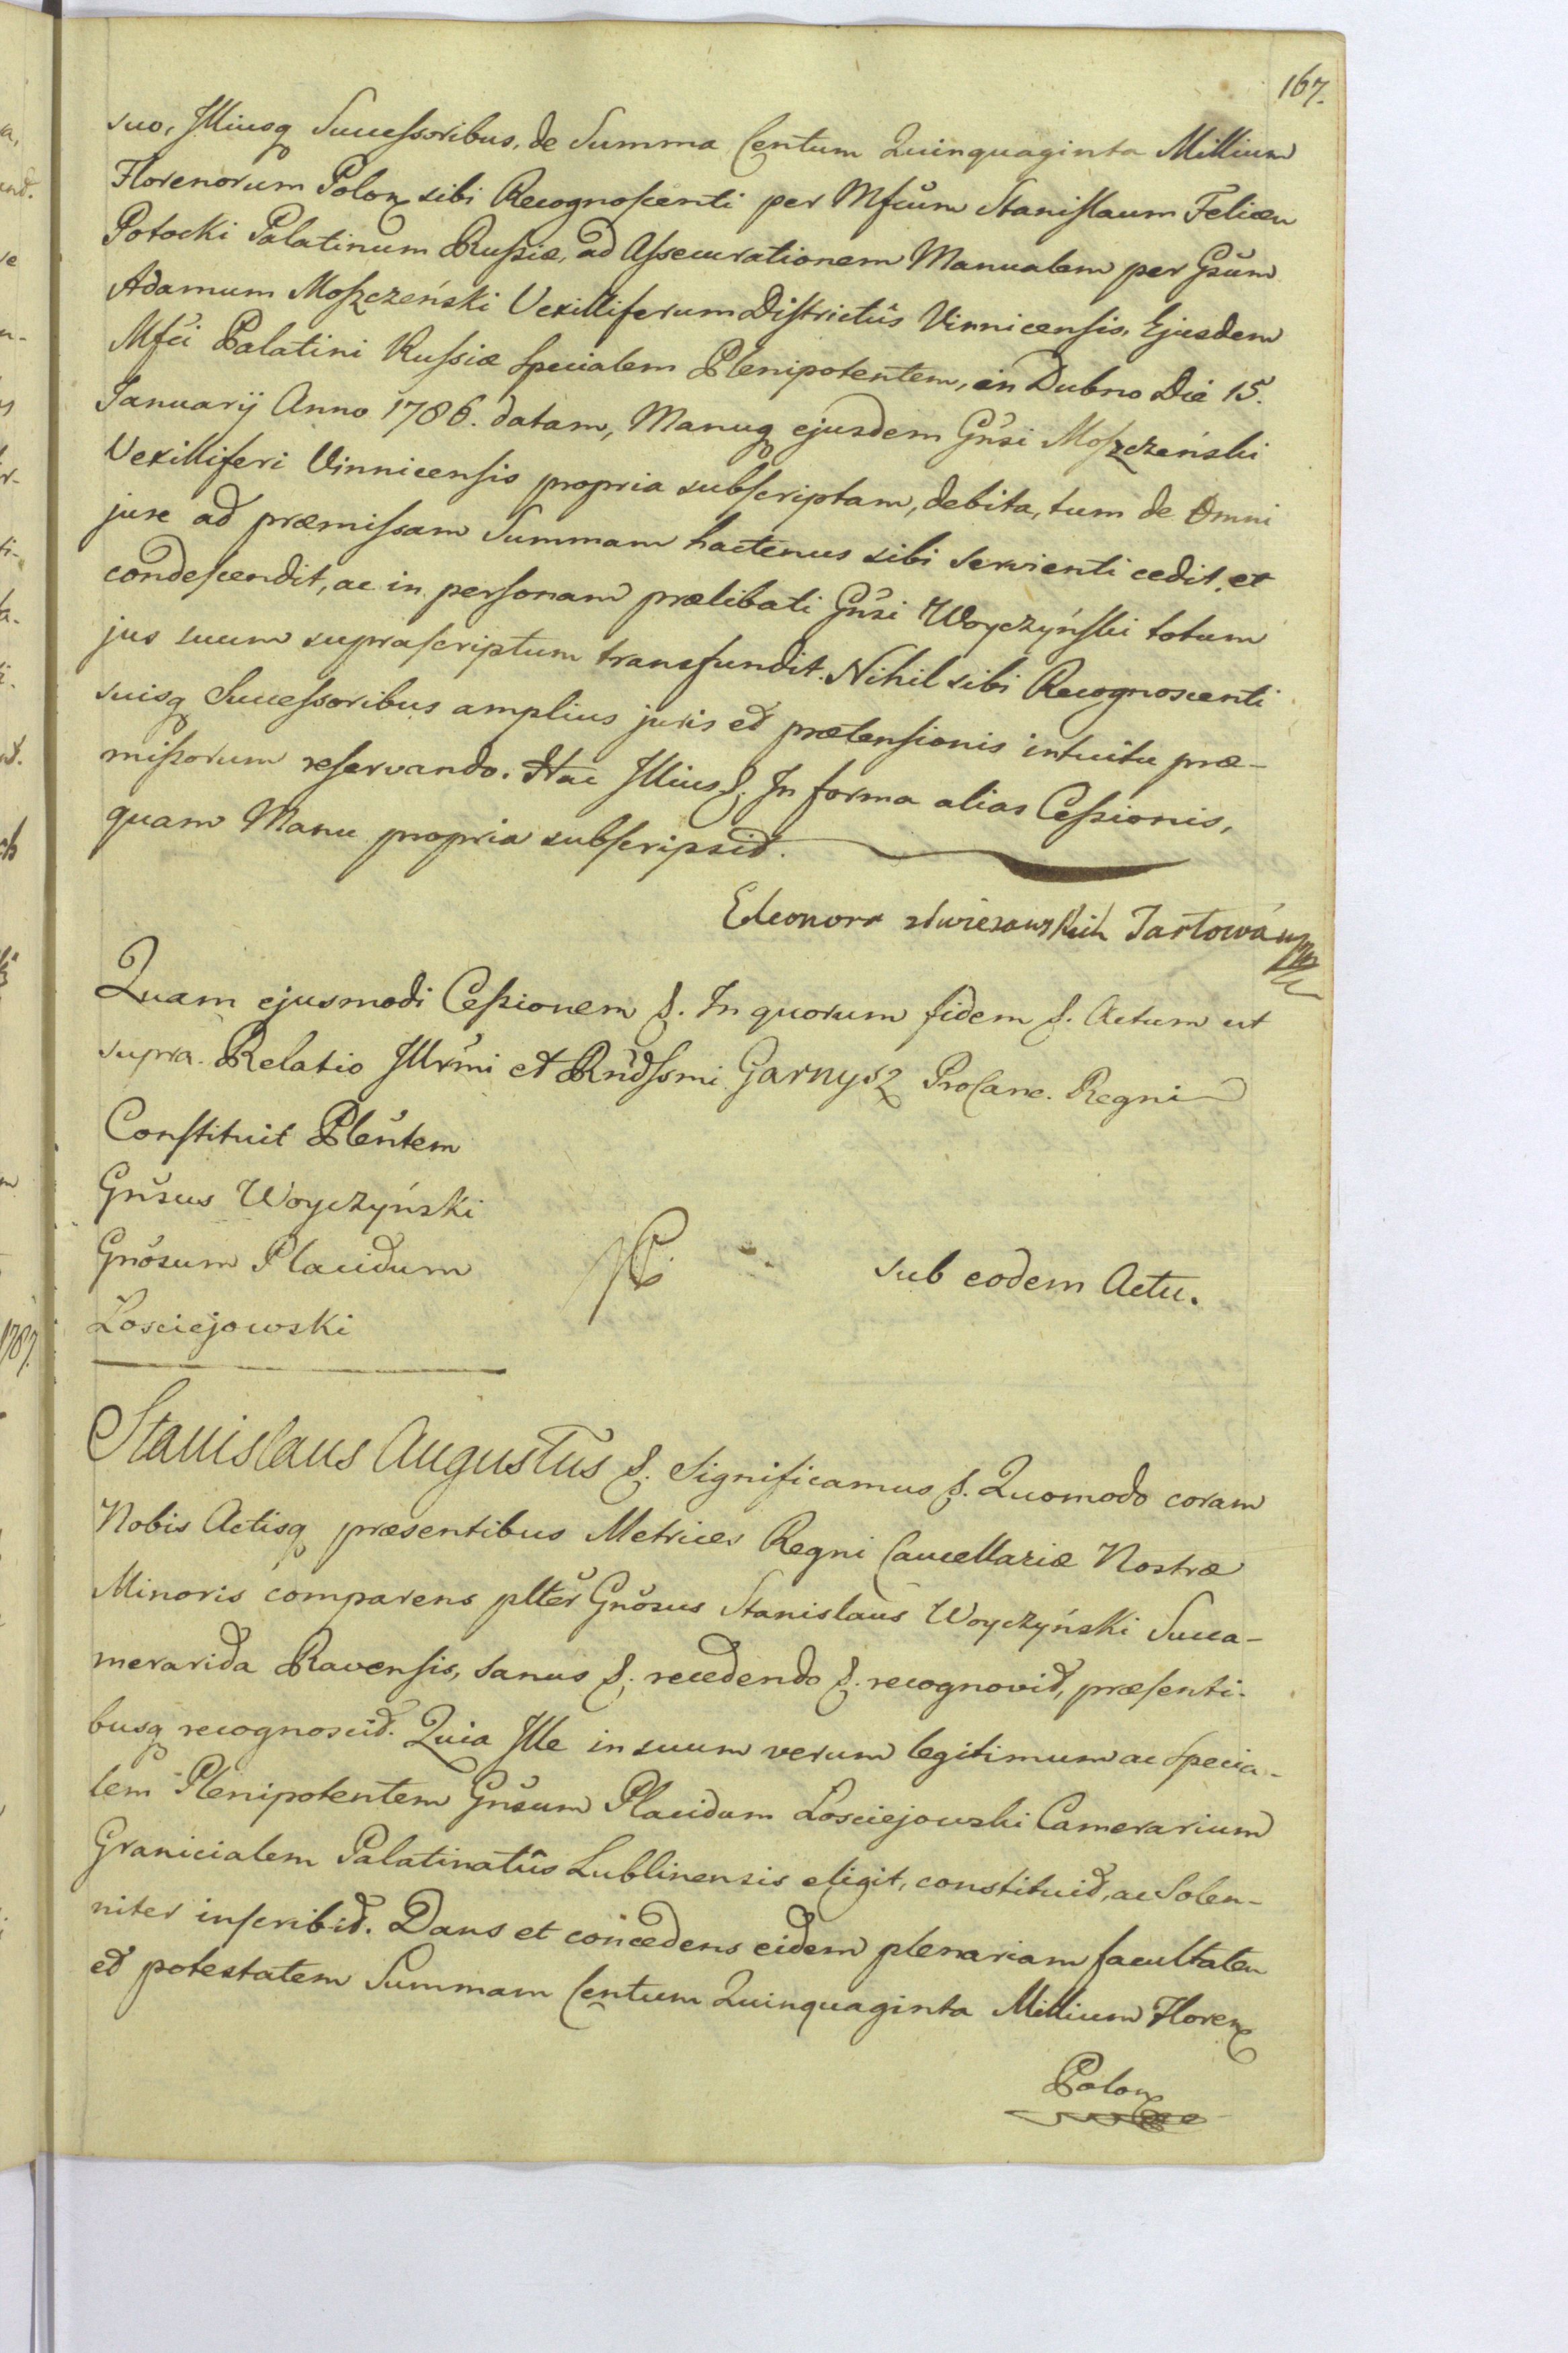 167.
suo, Illiusq Successoribus, de Summa Centum Quinquaginta Millium
Florenorum Polon sibi Recognoscenti per Mfcum Stanislaum Felicem
Potocki Palatinum Russiæ, ad Assecurationem Manualem per Gsum
Adamum Moszczeński Vexilliferum Districtûs Vinnicensis, Ejusdem
Mfci Palatini Russiæ specialem Plenipotentem, in Dubno Die 15.
Januarij Anno 1786. datam, Manuq ejusdem Gnsi Moszczeński
Vexilliferi Vinnicensis propria subscriptam, debita, tum de Omni
jure ad præmissam Summam hactenus sibi servienti cedit, et
condescendit, ac in personam prælibati Gnsi Woyczyński totum
jus suum suprascriptum transfundit. Nihil sibi Recognoscenti
suisq Successoribus amplius juris et prætensionis intuitu præ-
missorum reservando. Hac Illius &. In forma alias Cessionis,
quam Manu propria subscripsit.
Eleonora Jartowa
Quam ejusmodi Cessionem &. In quorum fidem &. Actum ut
supra. Relatio Illrmi et Rndssmi Garnysz ProCanc. Regni
Constituit Plentem
Gnsus Woyczyński
Gnosum Placidum
Losciejowski
sub eodem Actu.
1787.
Stanislaus Augustus &. Significamus &. Quomodo coram
Nobis Actisq præsentibus Metrices Regni Cancellariæ Nostræ
Minoris comparens plter Gnosus Stanislaus Woyczyński Succa-
merarida Ravensis, sanus &. recedendo &. recognovit, præsenti-
busq recognoscit. Quia Ille in suum verum legitimum ac specia-
lem Plenipotentem Gnsum Placidum Losciejowski Camerarium
Granicialem Palatinatûs Lublinensis eligit, constituit, ac Solen-
niter inscribit. Dans et concedens eidem plenariam facultatem
et potestatem Summam Centum Quinquaginta Millium Floren
Polon